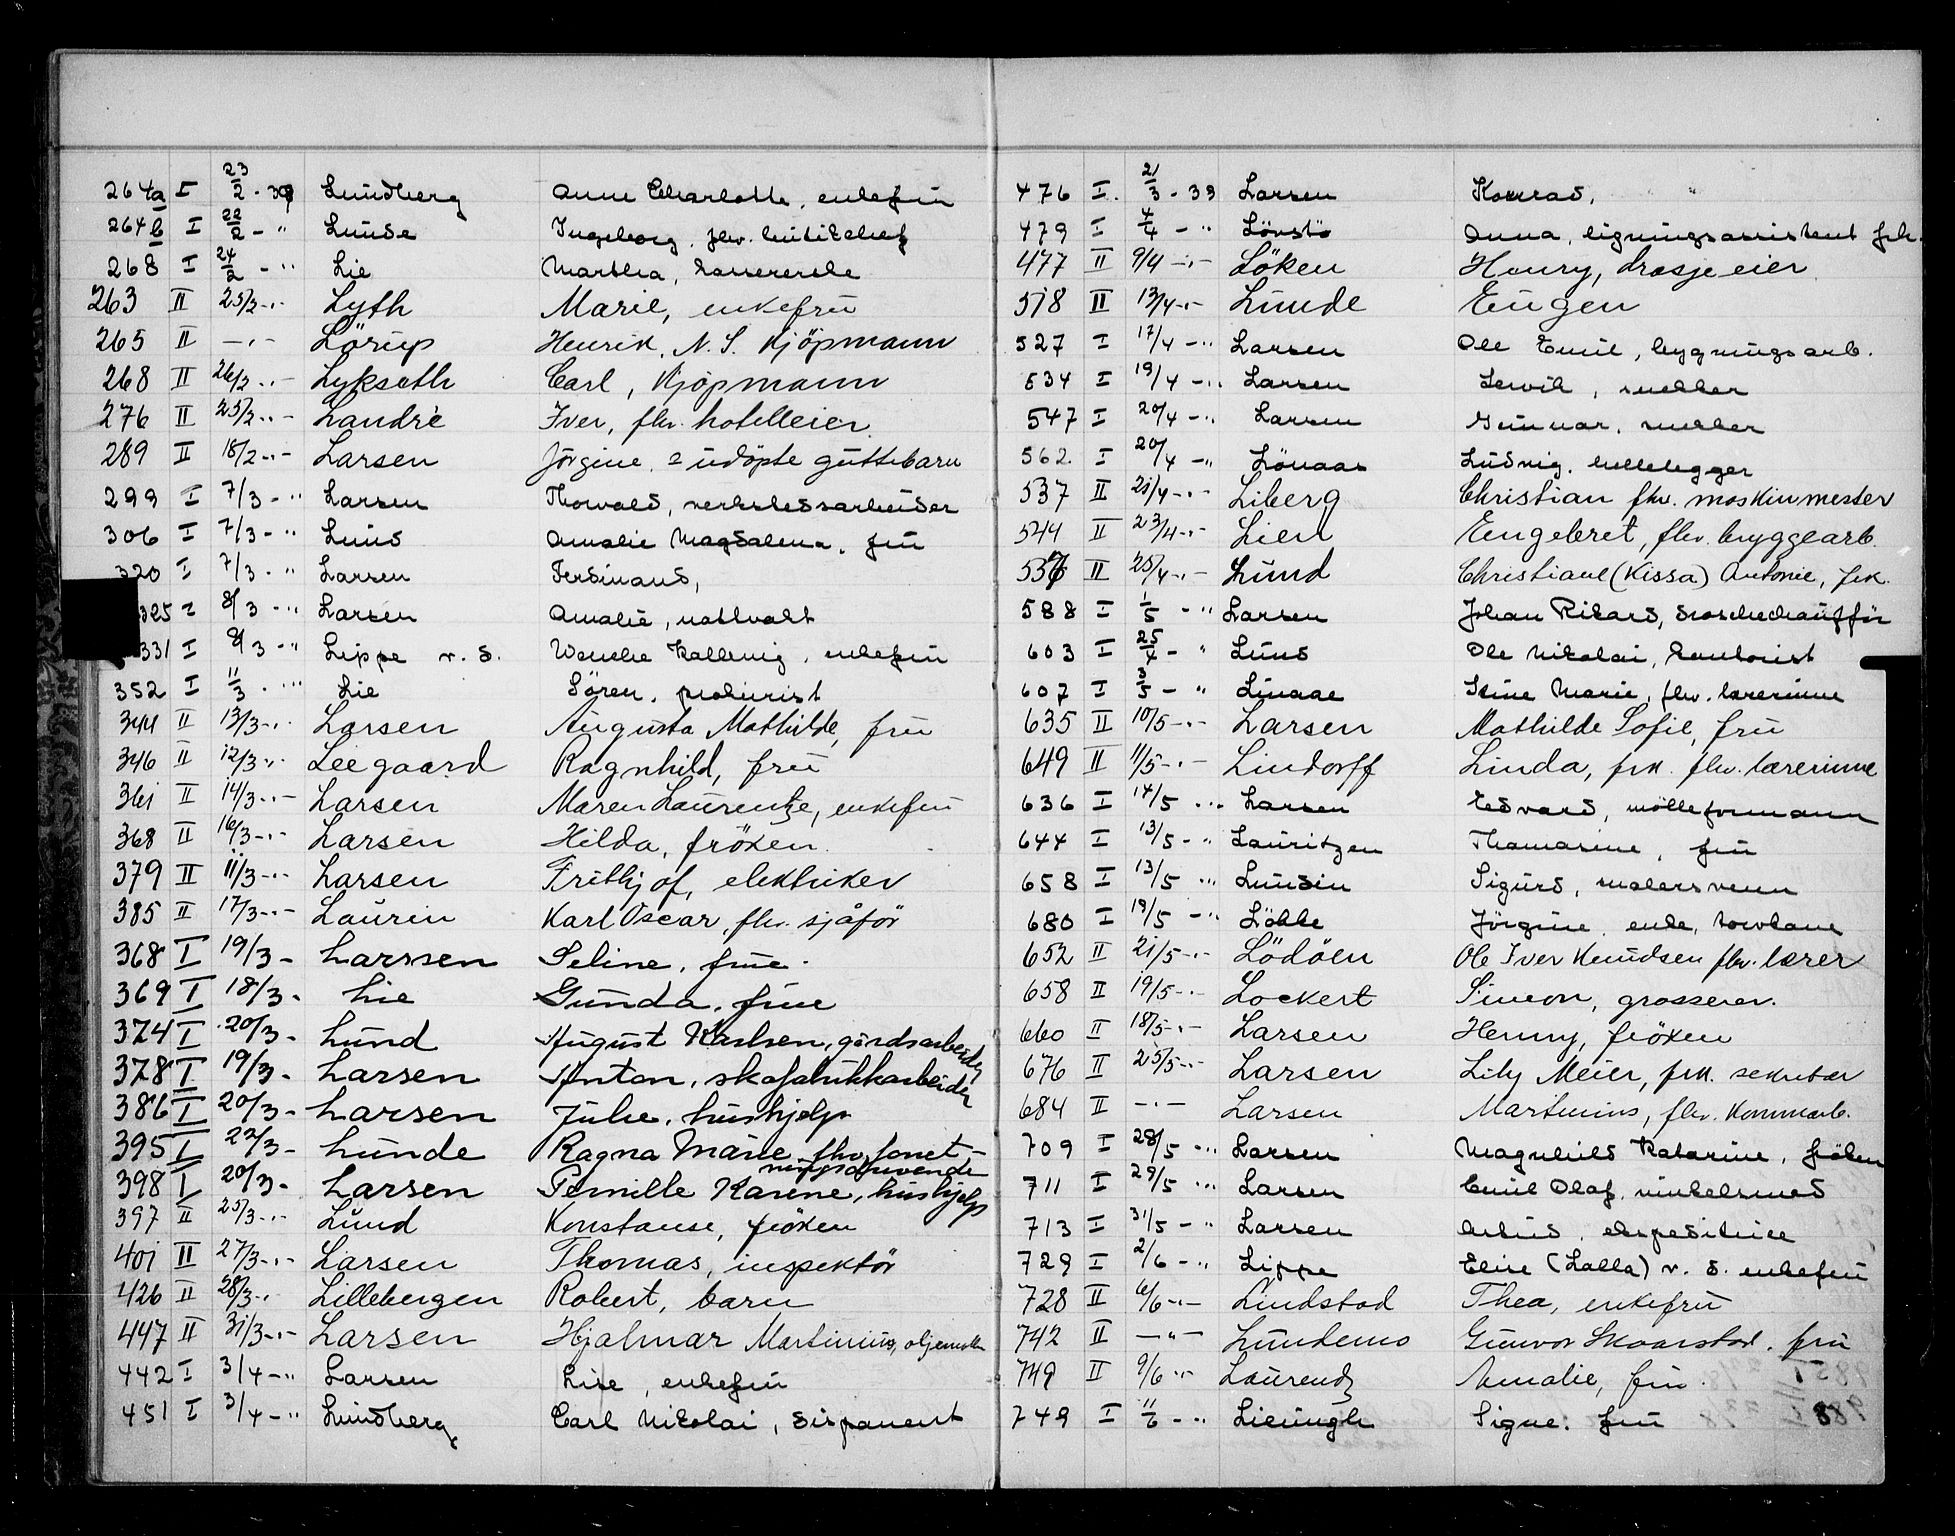 264a I 23/2 - 39 Lundberg Anne Charlotte, enkefru
264b I 22/2 - " Lunde Ingeborg, fhv. butikchef
268 I 24/2 - " Lie Martha, kassererske
263 II 25/2 -"- Lyth Marie, enkefru
265 II -"- Lörup Henrik, N. S. Kjöpmann
268 II 26/2 -"- Lykseth Carl, Kjöpmann
276 II 25/2 -"- Landré Iver, fhv. hotelleier
289 II 18/2 -"- Larsen Jörgine, 2 udöpte guttebarn
299 I 7/3 - " Larsen Thorvald, verkstedsarbeider
306 I 7/3 - " Lund Amalie Magdalena, fru
320 I 7/3 - " Larsen Ferdinand,
325 I 8/3 - " Larsen Amalie, nattvakt
331 I 9/3 - " Lippe v. d. Wenche Kallevig, enkefru
352 I 11/3 - " Lie Sören, prokurist
344 II 13/3 -"- Larsen Augusta Mathilde, fru
346 II 12/3 -"- Leegaard Ragnhild, fru
361 II 14/3 -"- Larsen Maren Laurentze, enkefru
368 II 16/3 -"- Larsen Hilda, fröken
379 II 11/3 -"- Larsen Frithjof, elektriker
385 II 17/3 -"- Laurin Karl Oscar, fhv. sjåför
368 I 19/3 - Larssen Seline, frue
369 I 18/3 - Lie Gunda, frue
374 I 20/3 - Lund August Karlsen, gårdsarbeider
378 I 19/3 - Larsen Anton, skofabrikkarbeider
386 I 20/3 - Larsen Julie, hushjelp
395 I 22/3 - Lunde Ragna Marie, fhv. forret-
ningsdrivende
398 I 20/3 - Larsen Pernille Karene, hushjelp
397 II 25/3 -"- Lund Konstanse, fröken
401 II 27/3 -"- Larsen Thomas, inspektör
426 II 28/3 -"- Lillebergen Robert, barn
447 II 31/3 -"- Larsen Hjalmar Martinius,
442 I 3/4 - " Larsen Lise, enkefru
451 I 3/4 - " Lundberg Carl Nikolai, disponent
476 I 21/3 - 39 Larsen Konrad,
479 I 4/4 - " Lövstö Anna, ligningsassistent frk.
477 II 9/4 -"- Löken Henry, drosjeeier
518 II 13/4 -"- Lunde Eugen
527 I 17/4 - " Larsen Ole Emil, bygningsarb.
534 I 19/4 - " Larsen Lervik, snekker
547 I 20/4 - " Larsen Gunnar, snekker
562 I 20/4 - " Lönaas Ludvig, hellelegger
537 II 21/4 -"- Liberg Christian fhv. maskinmester
544 II 23/4 -"- Lien Engebret, fhv. bryggearb.
556 II 25/4 -"- Lund Christiane (Kissa) Antonie, frk.
588 I 1/5 - " Larsen Johan Rikard, droschechaufför
603 I 25/4 - " Lund Ole Nikolai, kontorist
607 I 3/5 - " Linaae Stine Marie, fhv. lærerinne
635 II 10/5 -"- Larsen Mathilde Sofie, fru
649 II 11/5 -"- Lindorff Linda, frk. fhv. lærerinne
636 I 14/5 - " Larsen Edvard, mölleformann
644 I 13/5 - " Lauritzen Thomasine, fru
658 I 13/5 - " Lundin Sigurd, malersvenn
680 I 19/5 - " Lökke Jörgine, enke,
652 II 21/5 -"- Lödöen Ole Iver Knudsen fhv. lærer
658 II 19/5 -"- Lockert Simeon, grosserer.
660 II 18/5 -"- Larsen Henny, fröken
676 II 25/5 -"- Larsen Lily Meier, frk. sekretær
684 II -"- Larsen Martinius, fhv. kommarb.
709 I 28/5 - " Larsen Magnhild Katarine, fröken
711 I 29/5 - " Larsen Emil Olaf, vinkelsmed
713 I 31/5 - " Larsen Astrid, ekspeditrice
729 I 2/6 - " Lippe Elise (Lalla) v. d. enkefru
728 II 6/6 -"- Lindstad Thea, enkefru
742 II -"- Lundemo Gunvor Skaarstad, fru
749 II 9/6 -"- Laurendz Amalie, fru
749 I 11/6 - " Lieungh Signe, fru